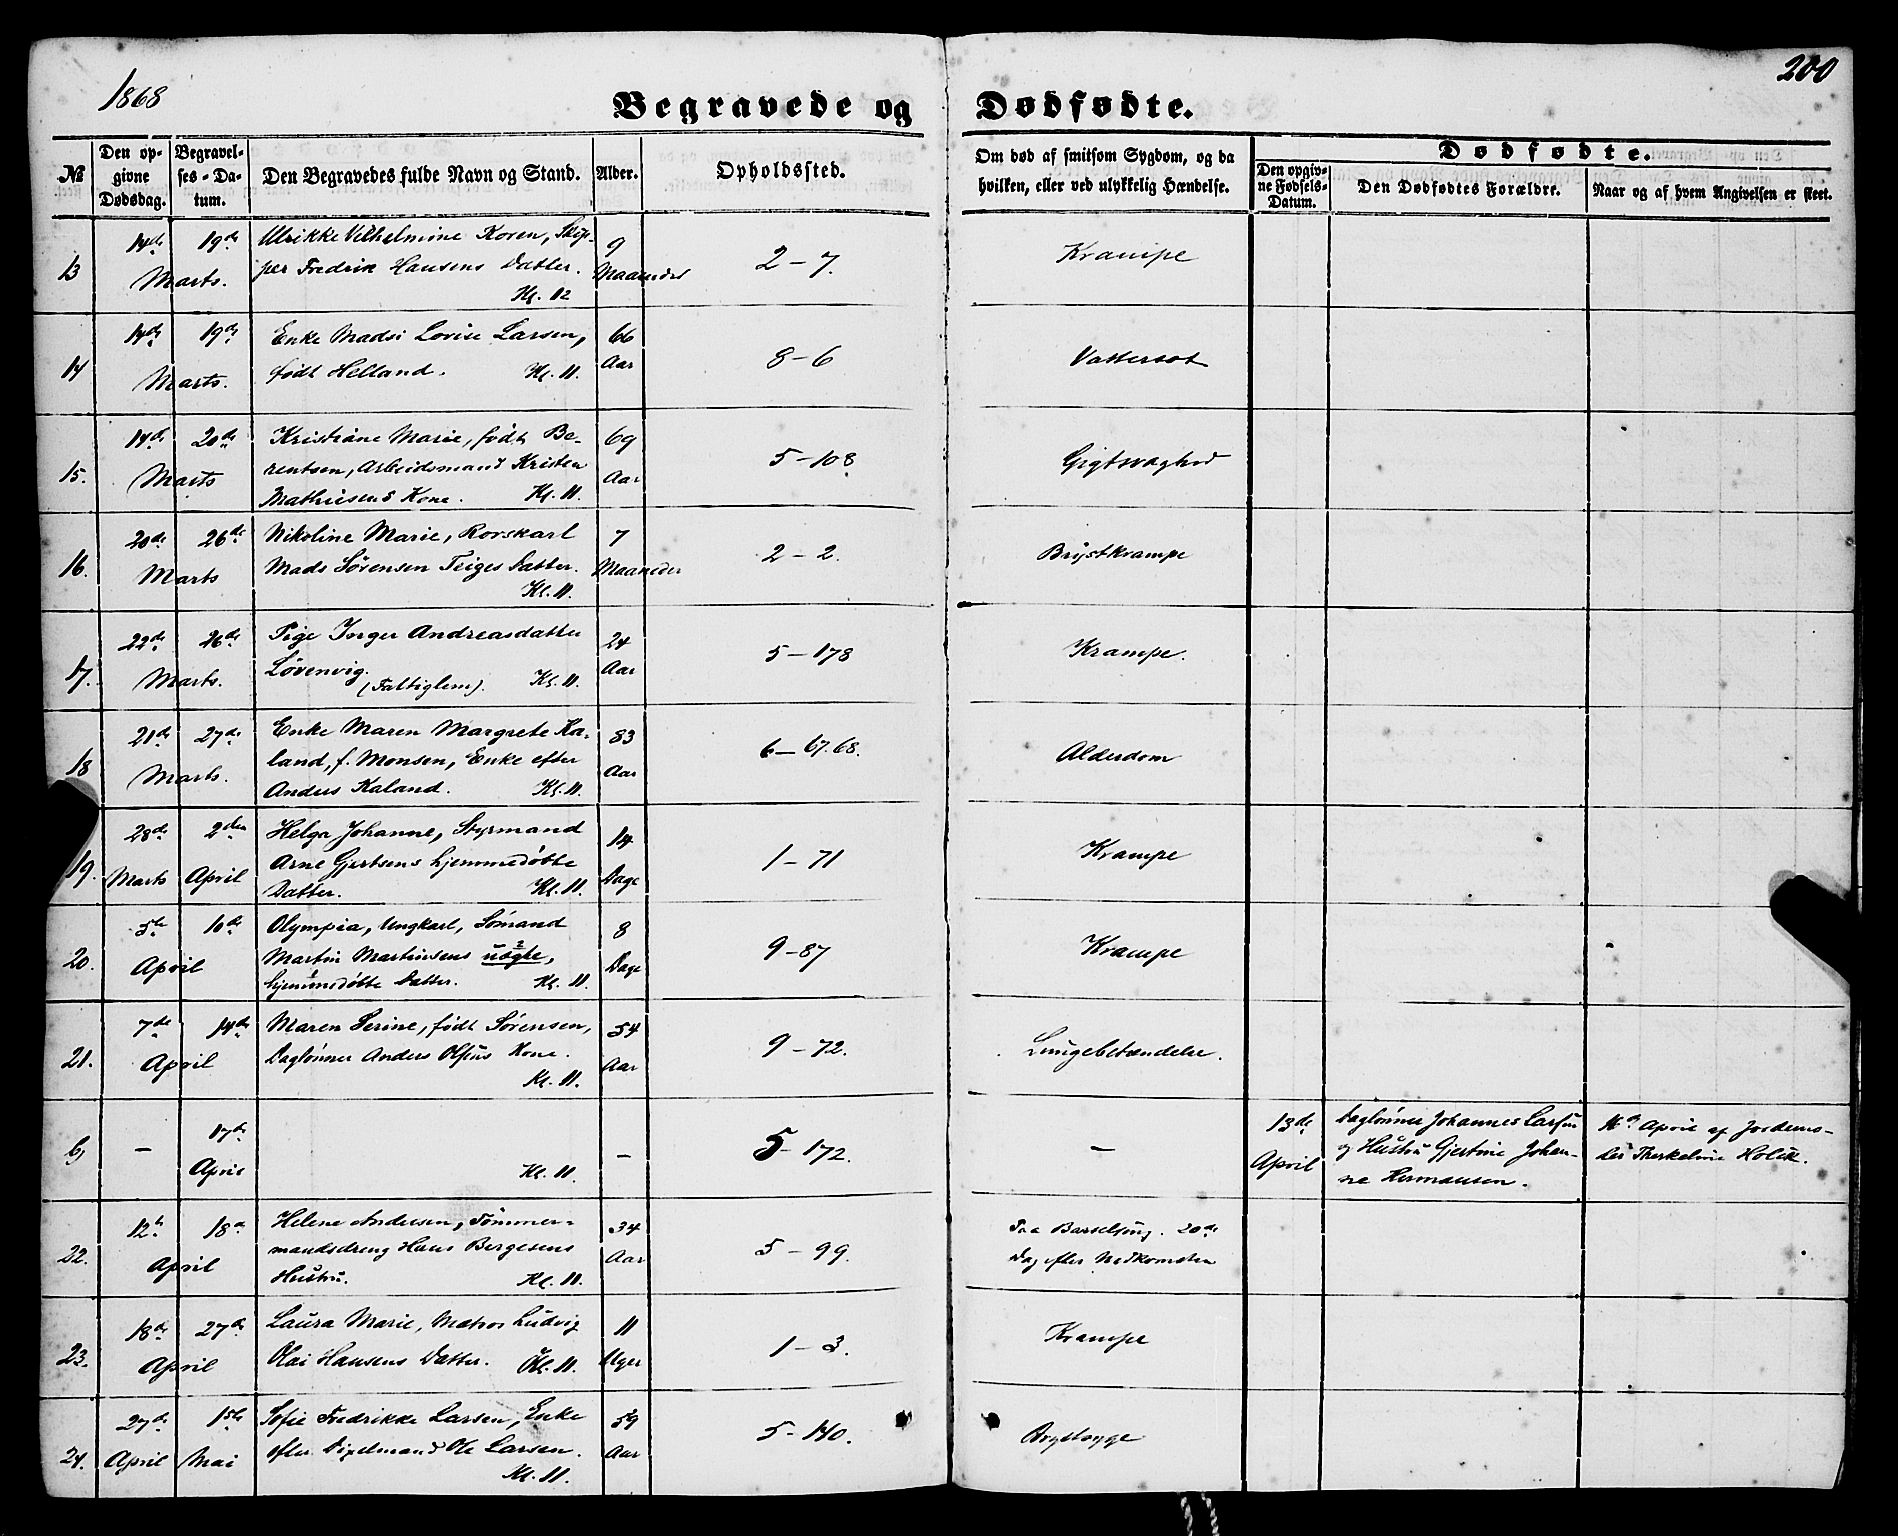 1868
200
Begravede og Dødfødte.
№
Den opgivne Dødsdag.
Begravelses-Datum.
Den Begravedes fulde Navn og Stand.
Alder.
Opholdssted.
Om død af smitsom Sygdom, og da hvilken, eller ved ulykkelig Hændelse.
Dødfødte.
Den opgivne Fødsels-Datum.
Den Dødfødtes Forældre.
Naar og af hvem Angivelsen er skeet.
13 14de 19de Marts.
Ulrikke Vilhelmine Koren, Skip-
per Fredrik Hansens Datter.
Kl. 12
9 Maaneder
2-7.
Krampe
14 14de 19de Marts.
Enke Madsi Lovise Larsen,
født Helland. Kl. 11.
66 Aar
8-6
Vattersot
15. 14de 20de Marts
Kristiane Marie, født Be-
rentsen, Arbeidsmand Kristen
Mathiesens Kone. Kl. 11.
69 Aar
5-108
Gigtsvaghed
16. 20de 26de Marts
Nikoline Marie, Rorskarl
Mads Sørensen Teiges Datter.
Kl. 11.
7 Maaneder
2-2.
Brystkrampe
17. 22de 26de Marts.
Pige Inger Andreasdatter
Løvenvig.
(Fattiglem). Kl. 11.
24 Aar
5-178
Krampe.
18 21de 27de Marts.
Enke Maren Margrete Ka-
land, f. Monsen, Enke efter
Anders Kaland. Kl. 11.
83 Aar
6-67.68.
Alderdom
19. 28de Marts 2den April
Helga Johanne, Styrmand
Arne Gjertsens hjemmedøbte
Datter. Kl. 11.
14 Dage
1-71
Krampe
20. 5te 10de April
Olympia, Ungkarl, Sømand
Martin Martinsens uægte,
hjemmedøbte Datter. Kl. 11.
8 Dage
9-87
Krampe
21. 7de 14de April
Maren Serine, født Sørensen,
Daglønner Anders Olsens Kone.
Kl. 11.
54 Aar
9-72.
Lungebetændelse.
6) - 17de April
Kl. 11.
-
5-172.
-
13de April
Daglønner Johannes Larsen
og Hustru Gjertine Johan-
ne Hermansen.
16de April af Jordemo-
der Therkeline Holck.
22. 12te 18de April
Helene Andersen, Tømmer-
mandsdreng Hans Bergesens
Hustru. Kl. 11.
34 Aar
5-99.
Paa Barselseng. 20de
Dag efter Nedkomsten
23. 18de 27de April
Laura Marie, Matros Ludvig
Olai Hansens Datter. Kl. 11.
11 Uger
1-3.
Krampe
24. 27de April 1ste Mai
Sofie Fredrikke Larsen, Enke
efter Ole Larsen.
Kl. 11.
59 Aar
5-140.
Brystsyge